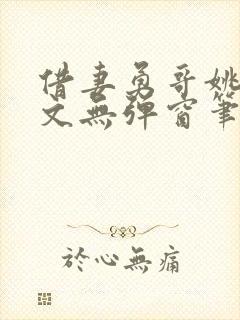 借妻勇哥姚
文無彈窗筆
於心無痛